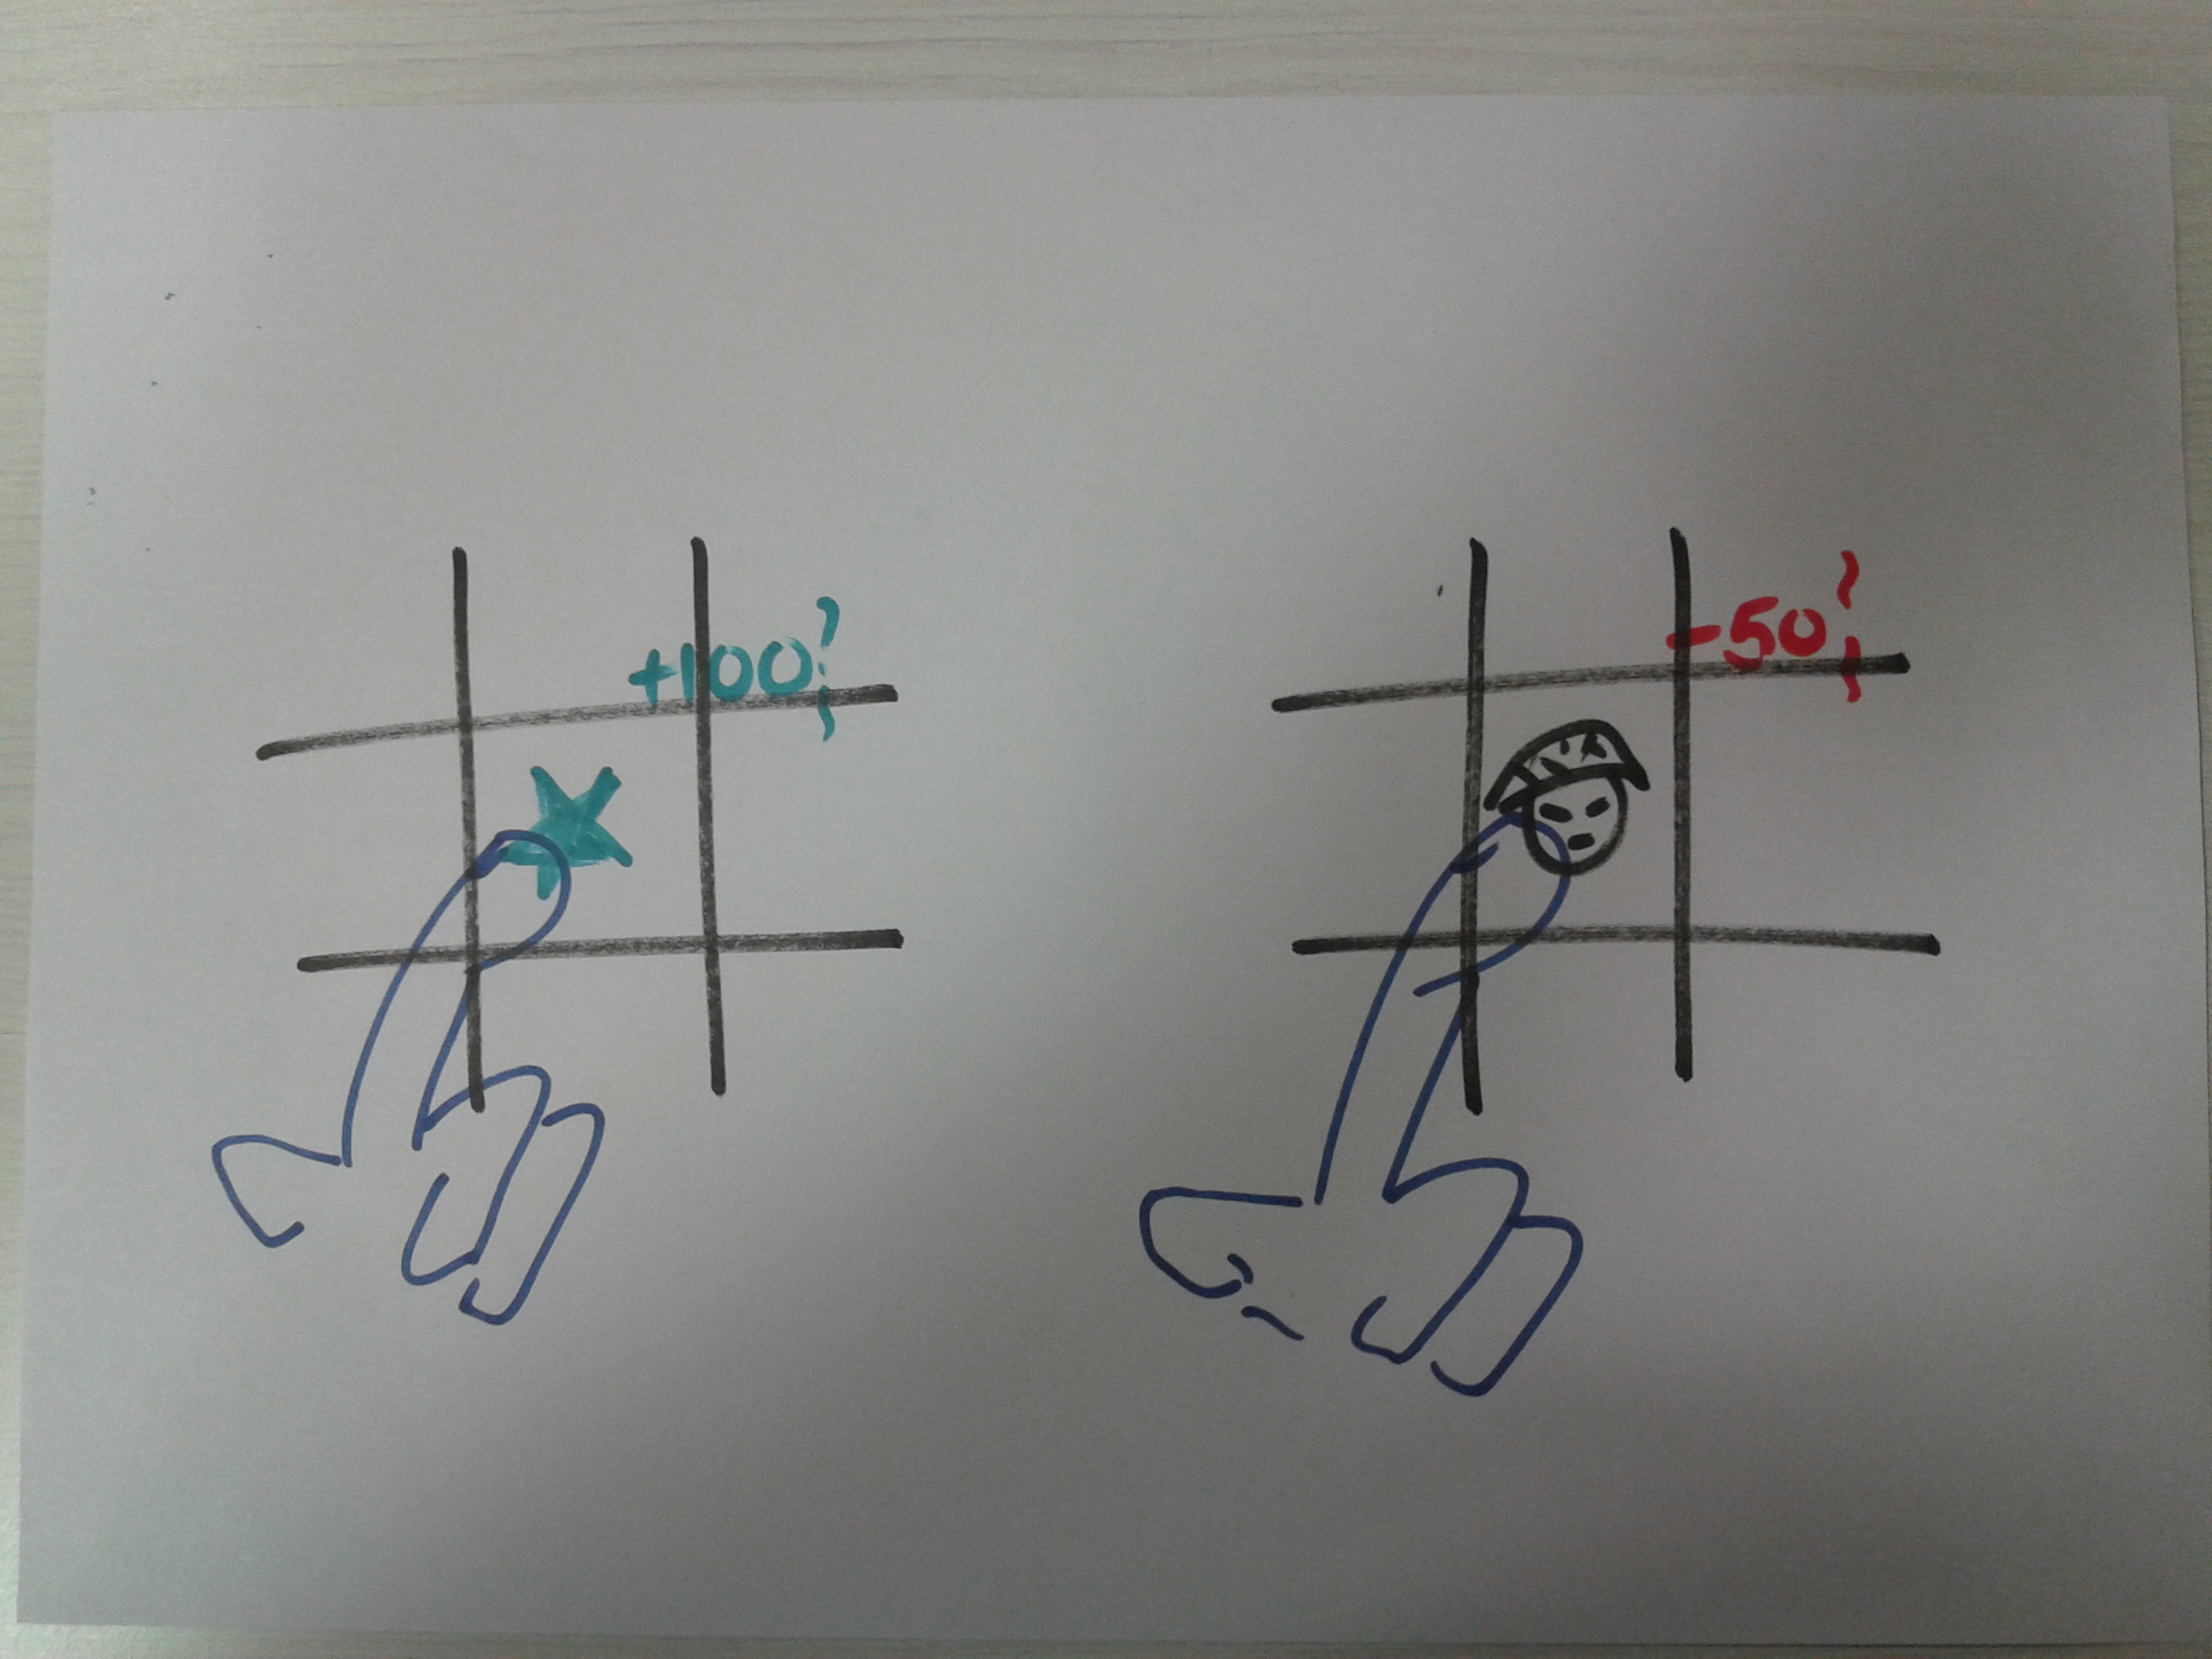 +100?
-50?